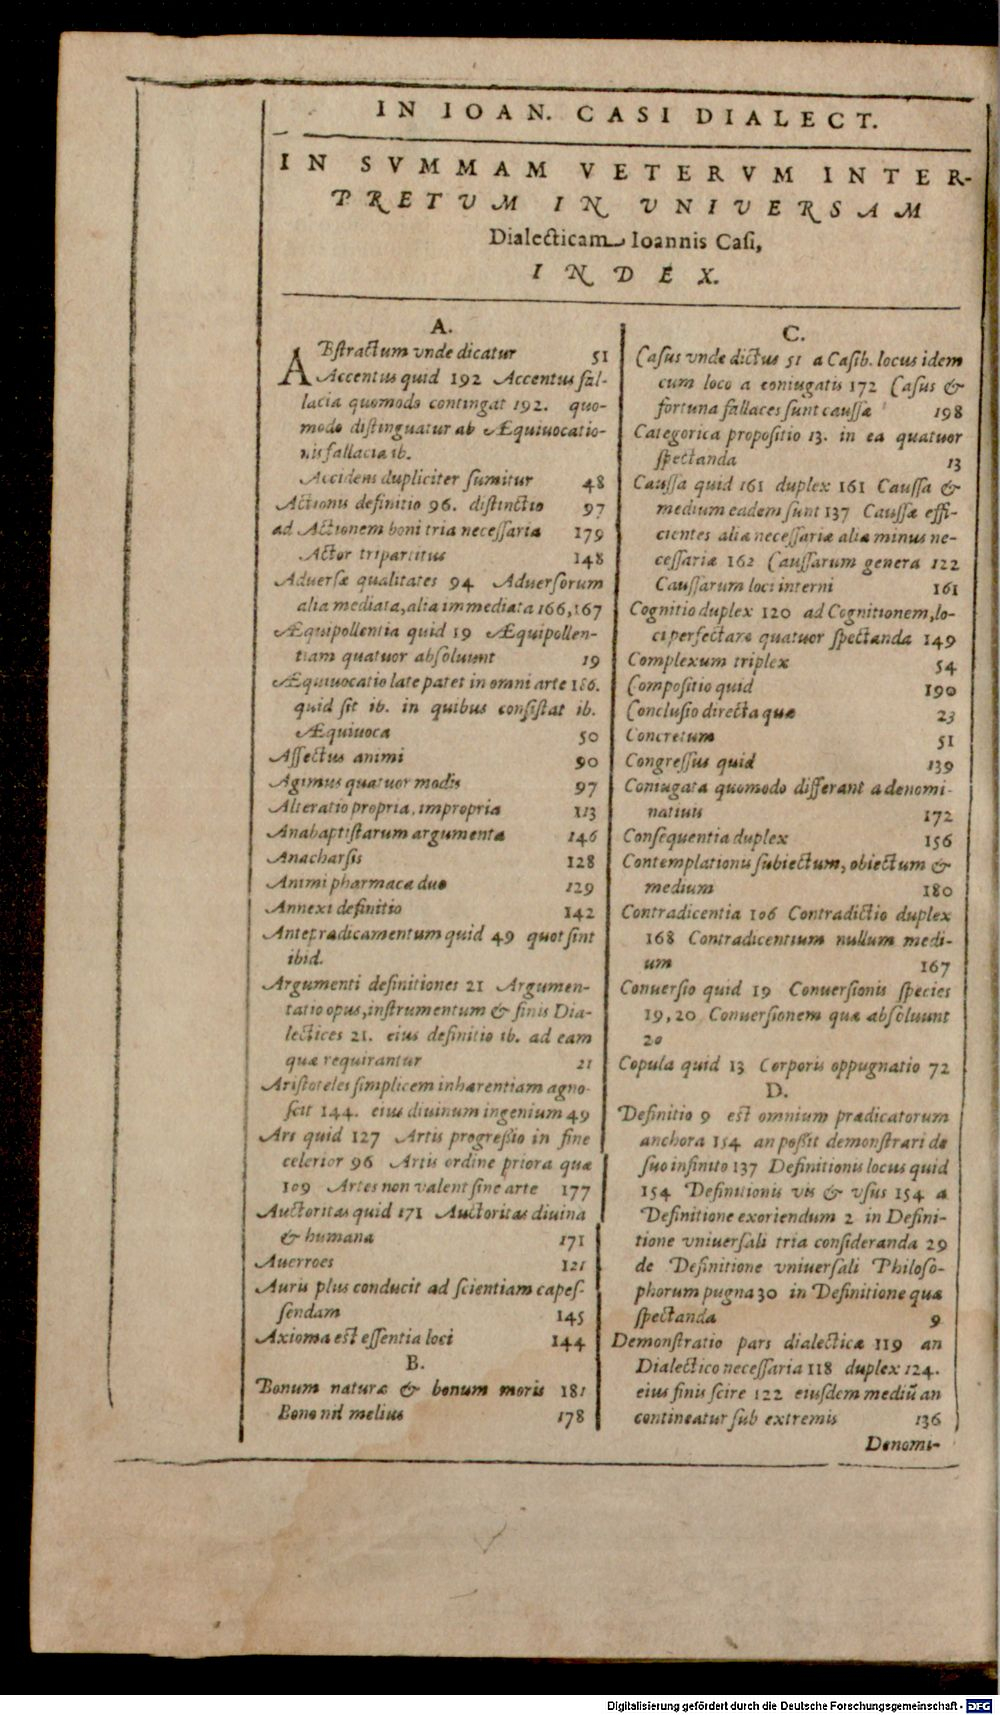 IN IOAN. CASI DIALECT.
IN SVMMAM VETERVM INTER-
PRETVM IN VNIVERSAM
Dialecticam Ioannis Casi,
INDEX.
A.
ABstractum vnde dicatur 51
Accentus quid 192 Accentus fal-
lacia quomodo contingat 192. quo-
modo distinguatur ab Æquiuocatio-
nis fallacia ib.
Accidens dupliciter sumitur 48
Actionis definitio 96. distinctio 97
ad Actionem boni tria necessaria 179
Actor tripartitus 148
Aduersæ qualitates 94 Aduersorum
alia mediata, alia immediata 166, 167
Æquipollentia quid 19 Æquipollen-
tiam quatuor absoluunt 19
Æquiuocatio late patet in omni arte 186.
quid sit ib. in quibus consistat ib.
Æquiuoca 50
Affectus animi 90
Agimus quatuor modis 97
Alteratio propria, impropria 113
Anabaptistarum argumenta 146
Anacharsis 128
Animi pharmaca duo 129
Annexi definitio 142
Antepradicamentum quid 49 quot sint
ibid.
Argumenti definitiones 21 Argumen-
tatio opus, instrumentum & finis Dia-
lectices 21. eius definitio ib. ad eam
quæ requirantur 21
Aristoteles simplicem inhærentiam agno-
scit 144. eius diuinum ingenium 49
Ars quid 127 Artis progreßio in fine
celerior 96 Artis ordine priora quæ
109 Artes non valent sine arte 177
Auctoritas quid 171 Auctoritas diuina
& humana 171
Auerroes 121
Auris plus conducit ad scientiam capes-
sendam 145
Axioma est essentia loci 144
B.
Bonum naturæ & bonum moris 181
Bono nil melius 178
C.
Casus vnde dictus 51 a Casib. locus idem
cum loco a coniugatis 172 Casus &
fortuna fallaces sunt caussæ 198
Categorica propositio 13. in ea quatuor
spectanda 13
Caussa quid 161 duplex 161 Caussa &
medium eadem sunt 137 Caussæ effi-
cientes aliæ necessariæ aliæ minus ne-
cessariæ 162 Caussarum genera 122
Caussarum loci interni 161
Cognitio duplex 120 ad Cognitionem, lo-
ci perfectare quatuor spectanda 149
Complexum triplex 54
Compositio quid 190
Conclusio directa quæ 23
Concretum 51
Congressus quid 139
Coniugata quomodo differant a denomi-
natiuis 172
Consequentia duplex 156
Contemplationis subiectum, obiectum &
medium 180
Contradicentia 106 Contradictio duplex
168 Contradicentium nullum medi-
um 167
Conuersio quid 19 Conuersionis species
19, 20 Conuersionem quæ absoluunt
20
Copula quid 13 Corporis oppugnatio 72
D.
Definitio 9 est omnium prædicatorum
anchora 154 an poßit demonstrari de
suo infinito 137 Definitionis locus quid
154 Definitionis vis & vsus 154 a
Definitione exoriendum 2 in Defini-
tione vniuersali tria consideranda 29
de Definitione vniuersali Philoso-
phorum pugna 30 in Definitione quæ
spectanda 9
Demonstratio pars dialecticæ 119 an
Dialectico necessaria 118 duplex 124.
eius finis scire 122 eiusdem mediū an
contineatur sub extremis 136
Denomi-
Digitalisierung gefördert durch die Deutsche Forschungsgemeinschaft - DFG